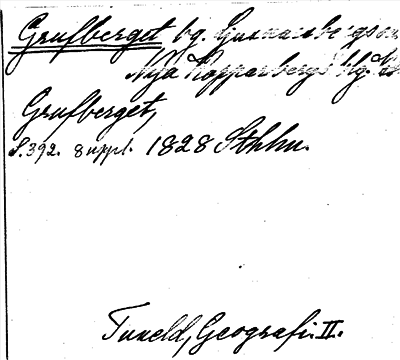 Grufberget bg. Gusnarsbergs sn,
Nya Kopparbergs hg.
Grufberget,
S.392. 8 uppl. 1828 Sthlm.
Tuneld, Geografi. II.